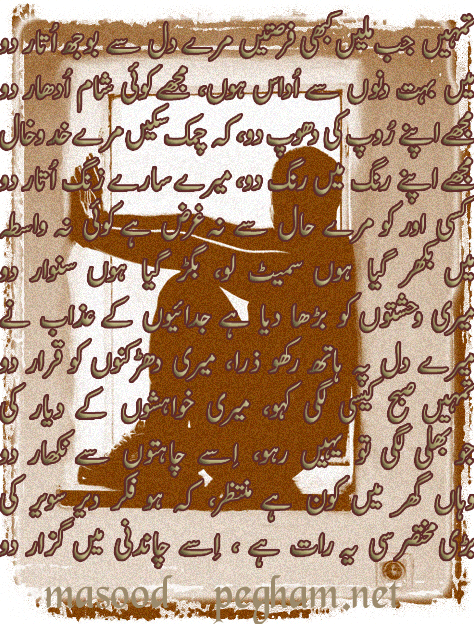 تمہیں جب ملیں کبھی فرصتیں مرے دل سے بوجھ اُتار دو
میں بہت دنوں سے اُداس ہوں، مجھے کوئی شام اُدھار دو
مجھے اپنے رُوپ کی دھوپ دو، کہ چمک سکیں مرے خد وخال
مجھے اپنے رنگ میں رنگ دو، میرے سارے زنگ اُتار دو
کسی اور کو مرے حال سے نہ غرض ہے کوئی نہ واسطہ
میں بکھر گیا ہوں سمیٹ لو، بگڑ گیا ہوں سنوار دو
میری وحشتوں کو بڑھا دیا ہے جدائیوں کے عذاب نے
میرے دل پہ ہاتھ رکھو ذرا، میری دھڑکنوں کو قرار دو
تمہیں صبح کیسی لگی کہو، میری خواہشوں کے دیار کی
جو بھلی لگی تو یہیں رہو، اِسے چاہتوں سے نکھار دو
وہاں گھر میں کون ہے منتظر، کہ ہو فکر دیر سویر کی
بڑی مختصر سی یہ رات ہے ، اِسے چاندنی میں گزار دو
masood pegham.net